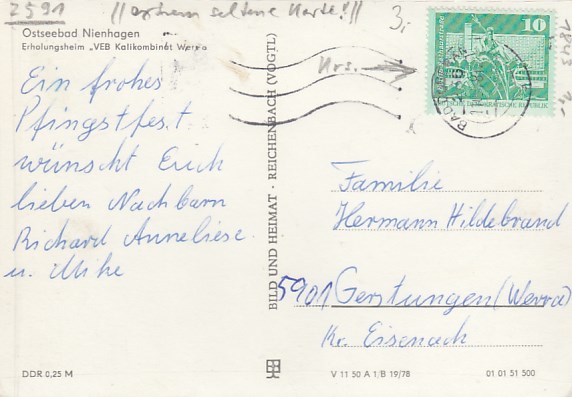 2591 //extrem seltene Karte!!//
3,-
Ostseebad Nienhagen
Erholungsheim „VEB Kalikombinat Werra"
Ein frohes
Pfingstfest
wünscht Euch
lieben Nachbarn
Richard Anneliese
u. Mike
BILD UND HEIMAT · REICHENBACH (VOGTL)
10
BAD
1843
Familie
Hermann Hildebrand
5901 Gerstungen (Werra)
Kr. Eisenach
DDR 0,25 M
V 11 50 A 1/B 19/78
01 01 51 500